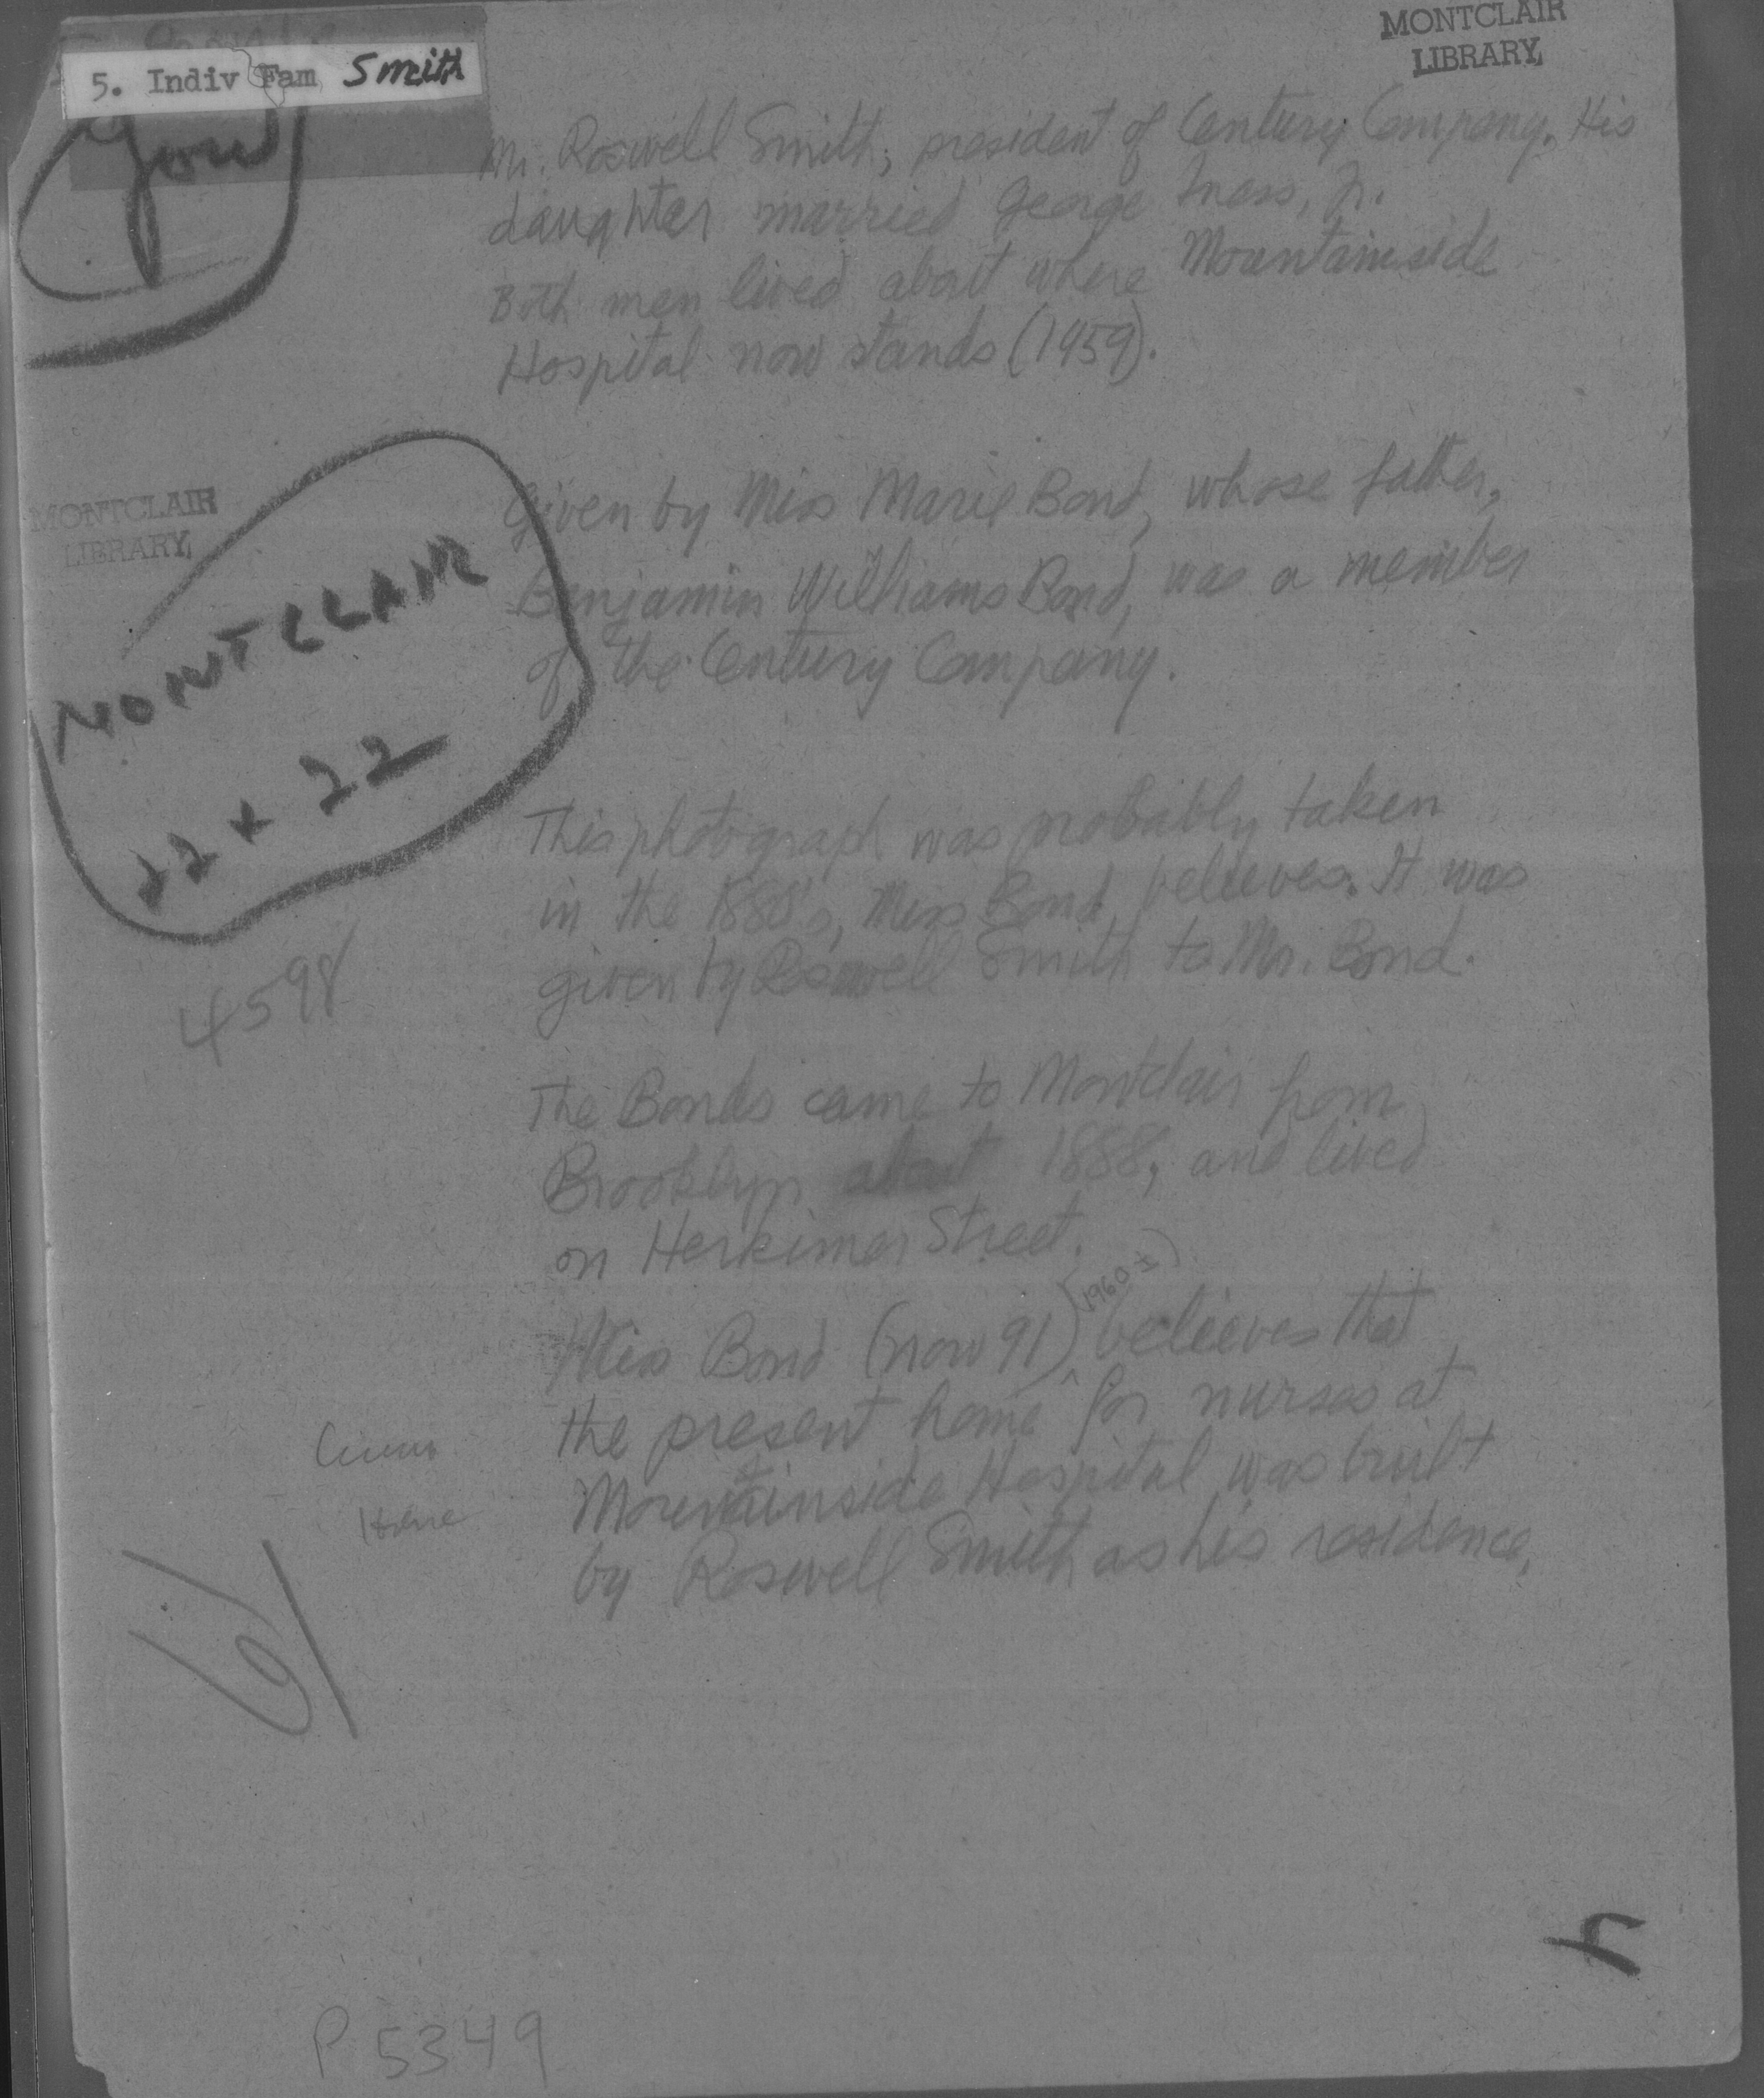 MONTCLAIR
LIBRARY,
5. Indiv Fam Smith
Mr. Roswell Smith, president of Century Company. His
daughter married George Iness, Jr.
Both men lived about where Mountainside
Hospital now stands (1959).
MONTCLAIR
LIBRARY,
Given by Miss Marie Bond, whose father,
Benjamin Williams Bond, was a member
of the Century Company.
MONTCLAIR
22 x 22
This photograph was probably taken
in the 1880's, Miss Bond believes. It was
given by Roswell Smith to Mr. Bond.
4598
The Bonds came to Montclair from
Brooklyn about 1888, and lived
on Herkimer Street.
(1960 ±)
Miss Bond (now 91) ^ believes that
the present home for nurses at
Mountainside Hospital was built
by Roswell Smith as his residence.
P 5349